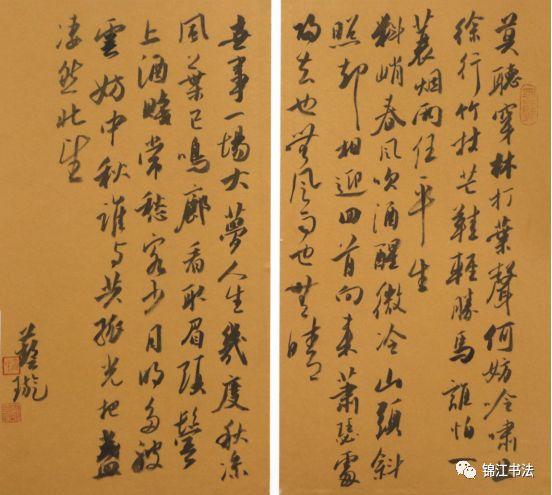 莫聽穿林打葉聲何妨吟嘯且
徐行竹杖芒鞋輕勝馬誰怕一
蓑烟雨任平生
料峭春風吹酒醒微冷山頭斜
照却相迎回首向来蕭瑟處
歸去也無風雨也無晴
世事一場大夢人生幾度秋凉
風葉已鳴廊看取眉頭鬢
上酒賤常愁客少月明多被
雲妨中秋誰与共孤光把盞
凄然北望
藝璇
锦江书法